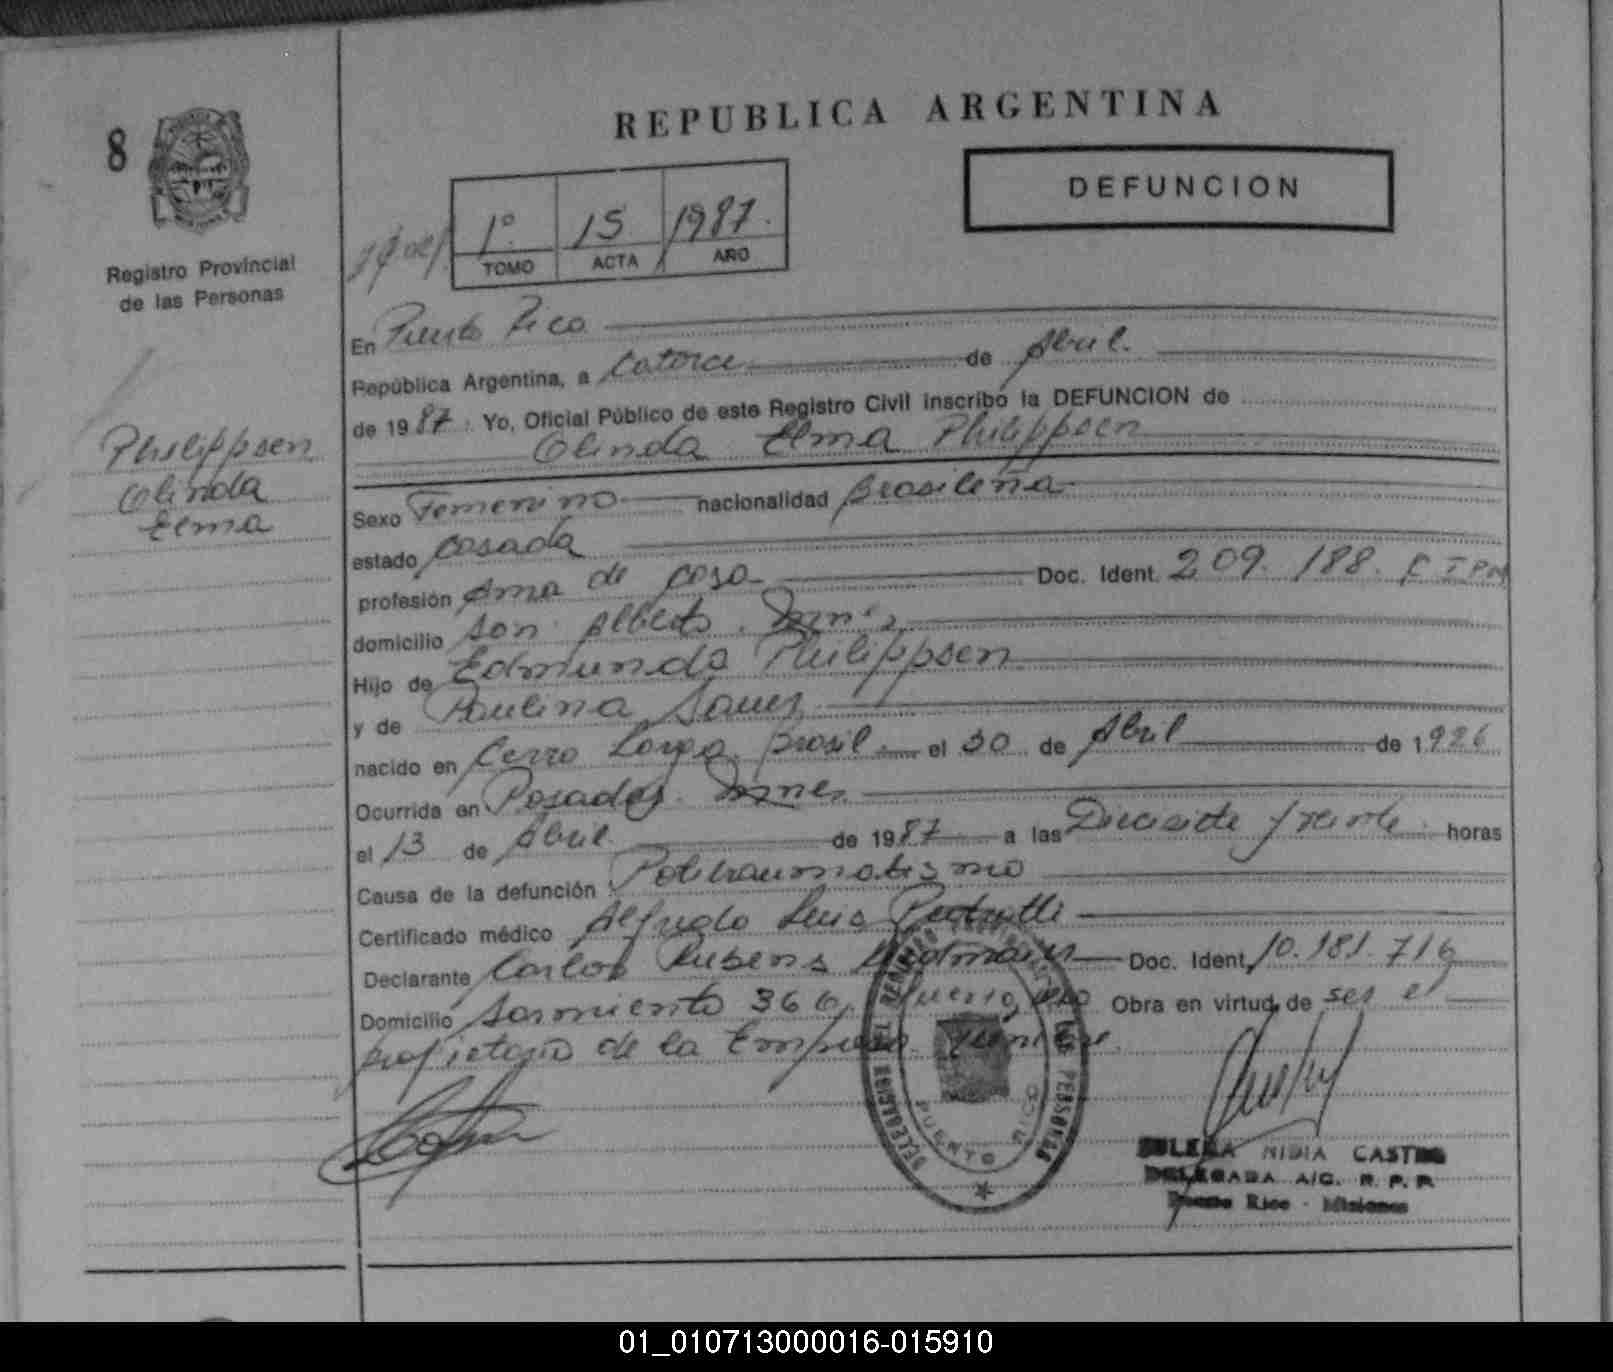 REPUBLICA ARGENTINA
8
DEFUNCION
1º 15 1987.
TOMO ACTA AÑO
Registro Provincial
de las Personas
En Puerto Rico
República Argentina, a Catorce de Abril.
de 1987. Yo, Oficial Público de este Registro Civil inscribo la DEFUNCION de
Olinda Elma Philippsen
Philippsen
Olinda
Elma
Sexo Femenino nacionalidad Brasileña
estado casada
profesión Ama de casa Doc. Ident. 209.188.
domicilio Son Alberto. Mnes
Hijo de Edmundo Philippsen
y de Paulina
nacido en Cerro Largo Brasil el 30 de Abril de 1926
Ocurrida en Posadas. Mnes
el 13 de Abril de 1987 a las Diecisiete y treinta horas
Causa de la defunción Politraumatismo
Certificado médico Alfredo Luis
Declarante Carlos Rubens Doc. Ident. 10.181.716
Domicilio Sarmiento 366, Puerto Rico Obra en virtud de ser el
propietario de la Empresa Fúnebre.
DELEGACION DEL REGISTRO PROVINCIAL DE LAS PERSONAS
PUERTO RICO
NIDIA CASTRO
DELEGADA A/C. R. P. P.
Puerto Rico - Misiones
01_010713000016-015910